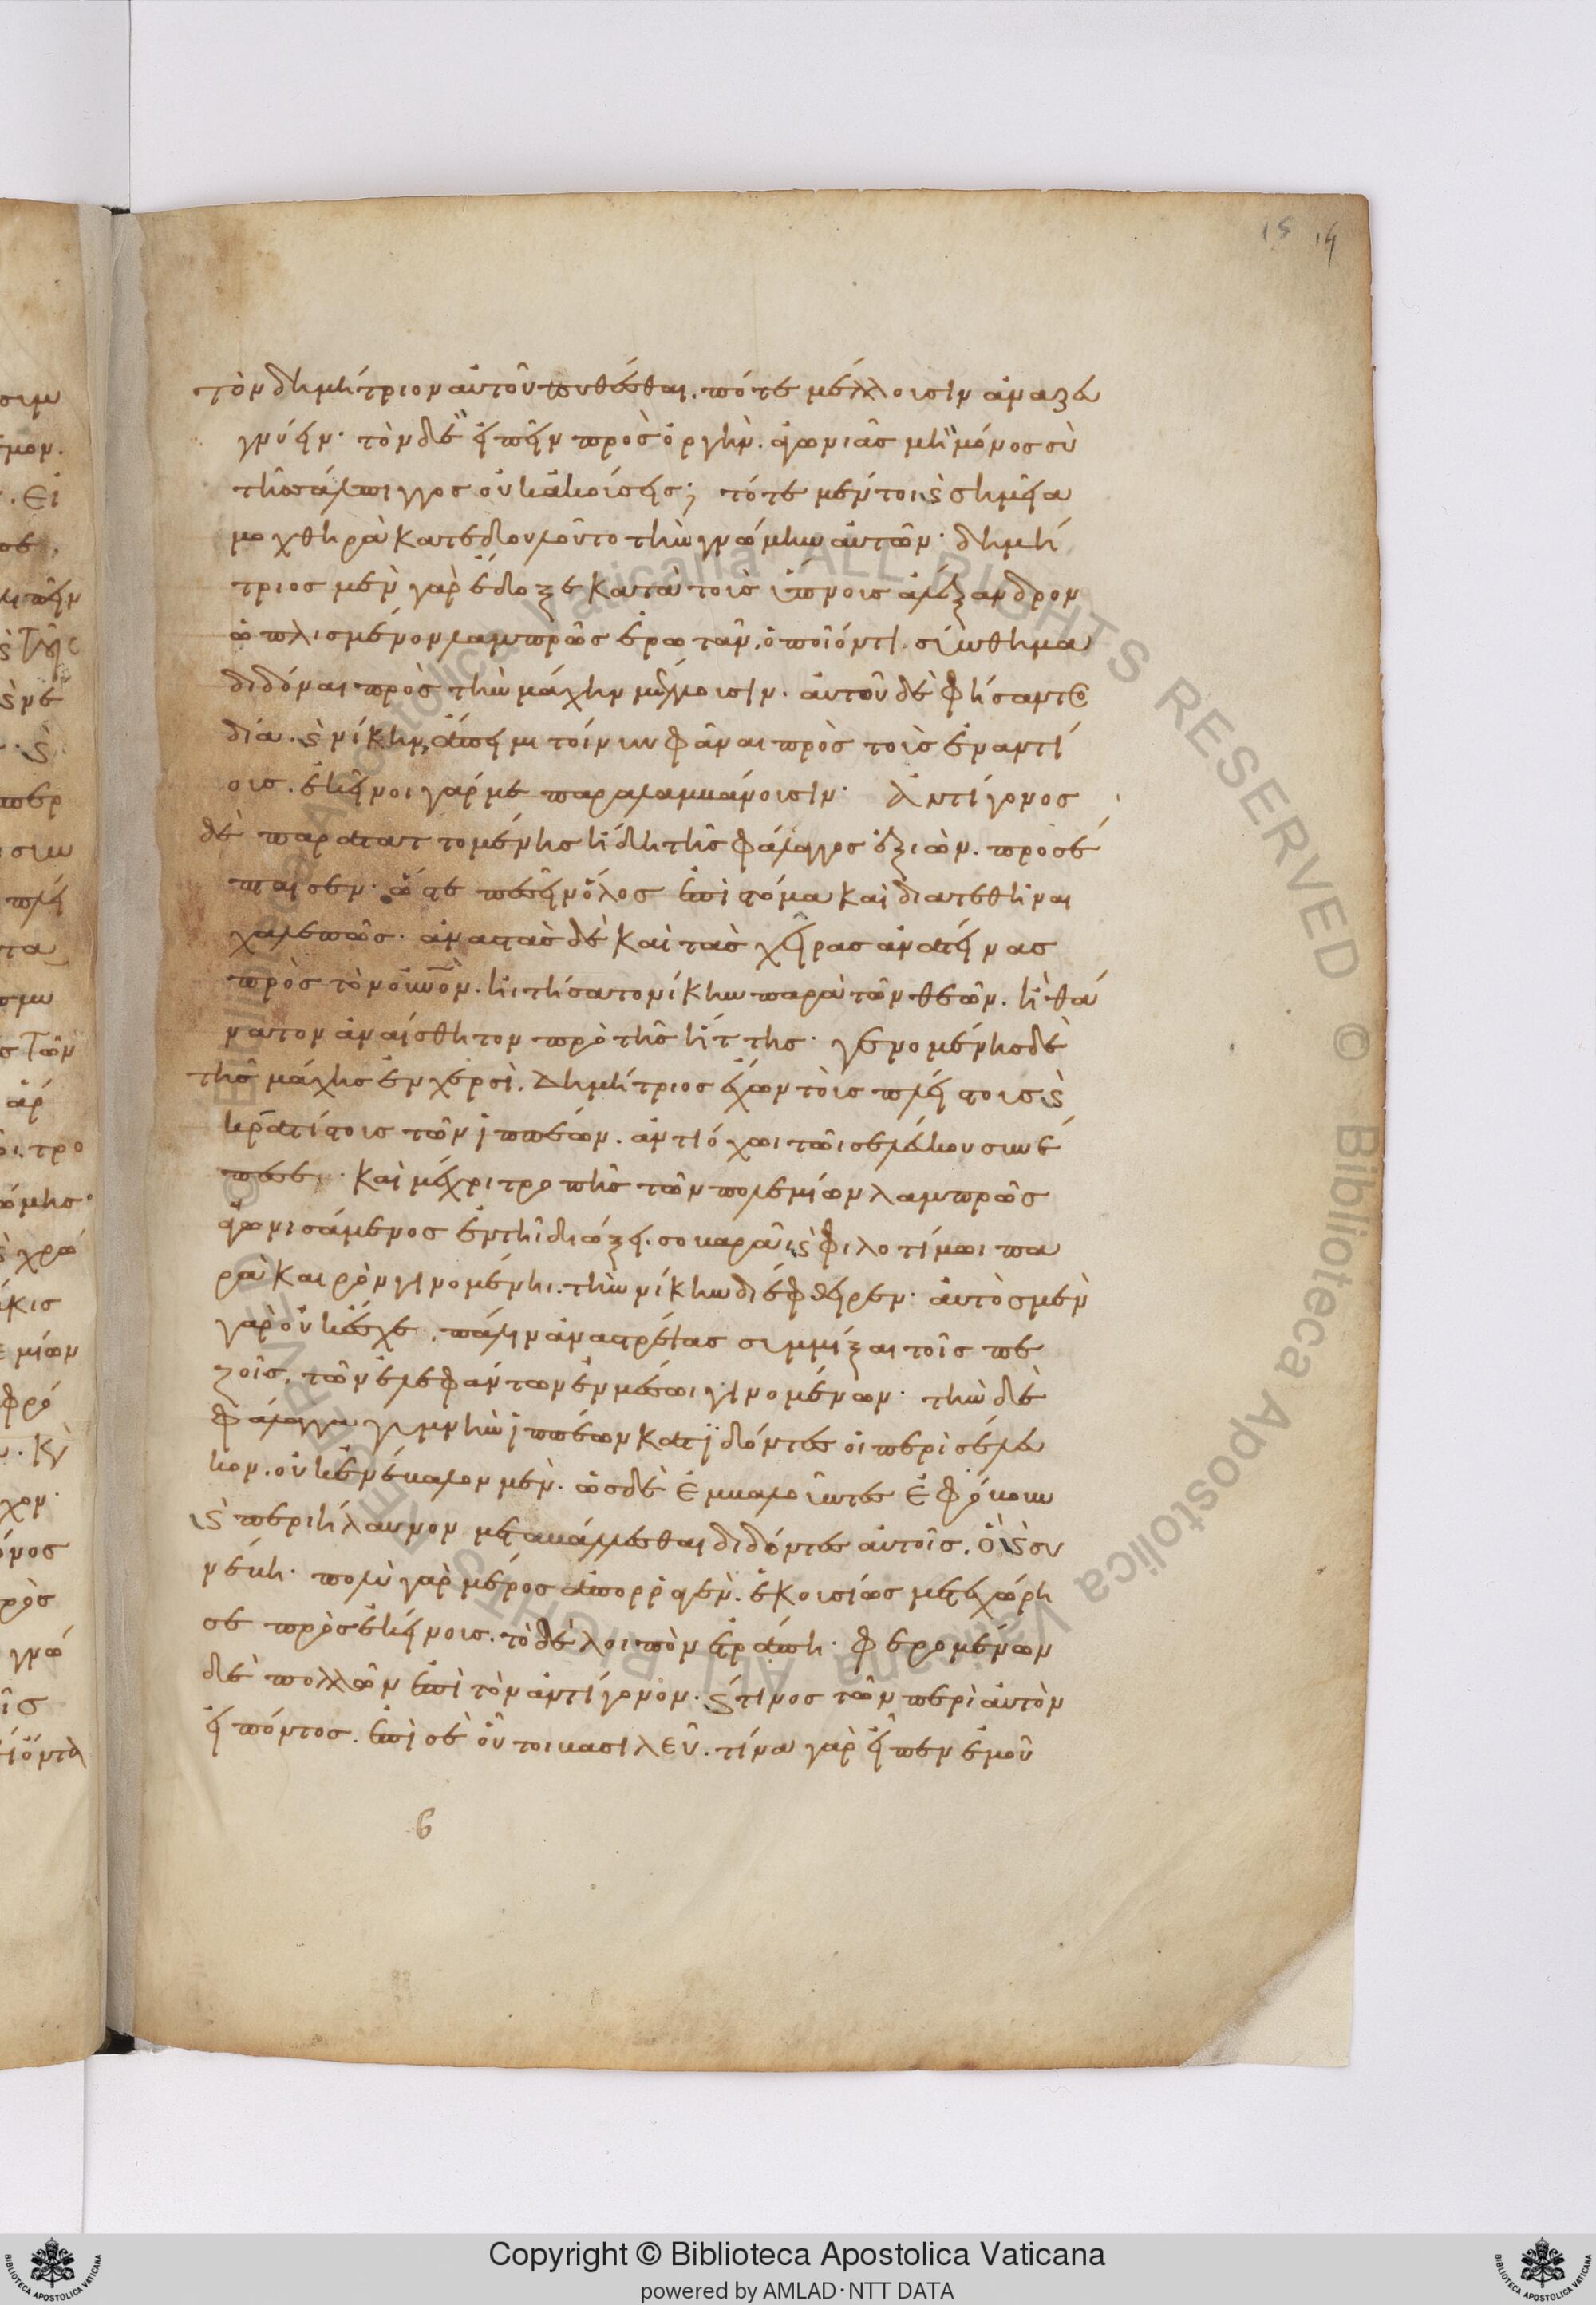 15 14
τὸν δημήτριον αὐτοῦ πυθέσθαι. πότε μέλλουσιν ἀναζευ
γνύειν· τὸν δὲ εἰπεῖν πρὸς ὀργήν. ἀγωνιᾶς μὴ μόνος σὺ
τῆς σάλπιγγος οὐκ ἀκούσεις; τότε μέντοι ϗ σημεῖα
μοχθηρὰ κατεδουλοῦντο τὴν γνώμην αὐτῶν· δημή
τριος μὲν γὰρ ἔδοξε κατὰ τοὺς ὕπνους ἀλέξανδρον
ὡπλισμένον λαμπρῶς ἐρωτᾶν. ὁποῖόν τι σύνθημα
διδόναι πρὸς τὴν μάχην μέλλουσιν. αὐτοῦ δὲ φήσαντος
δία. ϗ νίκην, ἄπειμι τοίνυν φάναι πρὸς τοὺς ἐναντί
ους. ἐκεῖνοι γάρ με παραλαμβάνουσιν· Ἀντίγονος
δὲ παραταττομένης ἤδη τῆς φάλαγγος ἐξιὼν. προσέ
πταισεν· ὥστε πεσεῖν ὅλος ἐπὶ στόμα καὶ διατεθῆναι
χαλεπῶς· ἀναστὰς δὲ καὶ τὰς χεῖρας ἀνατείνας
πρὸς τὸν οὐνὸν. ἠιτήσατο νίκην παρὰ τῶν θεῶν. ἢ θά
νατον ἀναίσθητον πρὸ τῆς ἥττης· γενομένης δὲ
τῆς μάχης ἐν χερσὶ. Δημήτριος ἔχων τοὺς πλείστους ϗ
κρατίστους τῶν ἱππέων. ἀντιόχωι τῶι σελεύκου συνέ
πεσε· καὶ μέχρι τροπῆς τῶν πολεμίων λαμπρῶς
ἀγωνισάμενος ἐν τῆι διώξει. σοβαρᾶι ϗ φιλοτίμωι πα
ρὰ καιρὸν γινομένηι. τὴν νίκην διέφθειρεν· αὐτὸς μὲν
γὰρ οὐκ ἔσχε. πάλιν ἀναστρέψας συμμίξαι τοῖς πε
ζοῖς. τῶν ἐλεφάντων ἐν μέσωι γινομένων· τὴν δὲ
φάλαγγα γυμνὴν ἱππέων κατϊδόντες οἱ περὶ σέλευ
κον. οὐκ ἐνέβαλον μὲν. ὡς δὲ ἐμβαλοῦντες ἐφόβουν
ϗ περιήλαυνον μεταβάλλεσθαι διδόντες αὐτοῖς. ὃ ϗ συ
νέβη· πολὺ γὰρ μέρος ἀπορραγὲν. ἑκουσίως μετεχώρη
σε πρὸς ἐκείνους. τὸ δὲ λοιπὸν ἐτράπη· φερομένων
δὲ πολλῶν ἐπὶ τὸν ἀντίγονον. ϗ τινος τῶν περὶ αὐτὸν
εἰπόντος. ἐπὶ σὲ οὗτοι βασιλεῦ. τίνα γὰρ εἶπεν ἐμοῦ
β
Copyright © Biblioteca Apostolica Vaticana
powered by AMLAD·NTT DATA